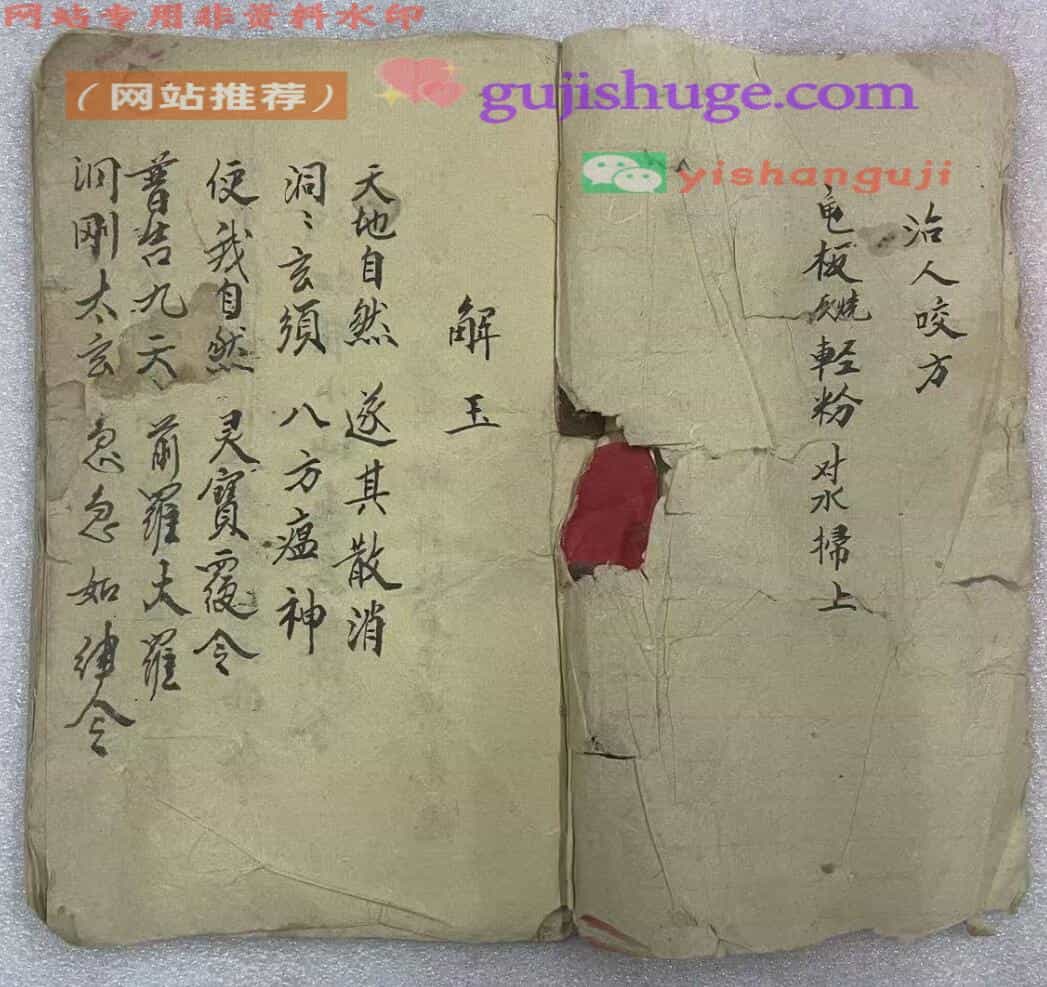 网站专用非资料水印
(网站推荐)
gujishuge.com
yishanguji
治人咬方
龟板燃烧輕粉对水掃上
解玉
天地自然 遂其散消
洞〻玄須 八方瘟神
使我自然 灵寶霞令
普告九天 前羅大羅
洞刚太玄 急急如律令